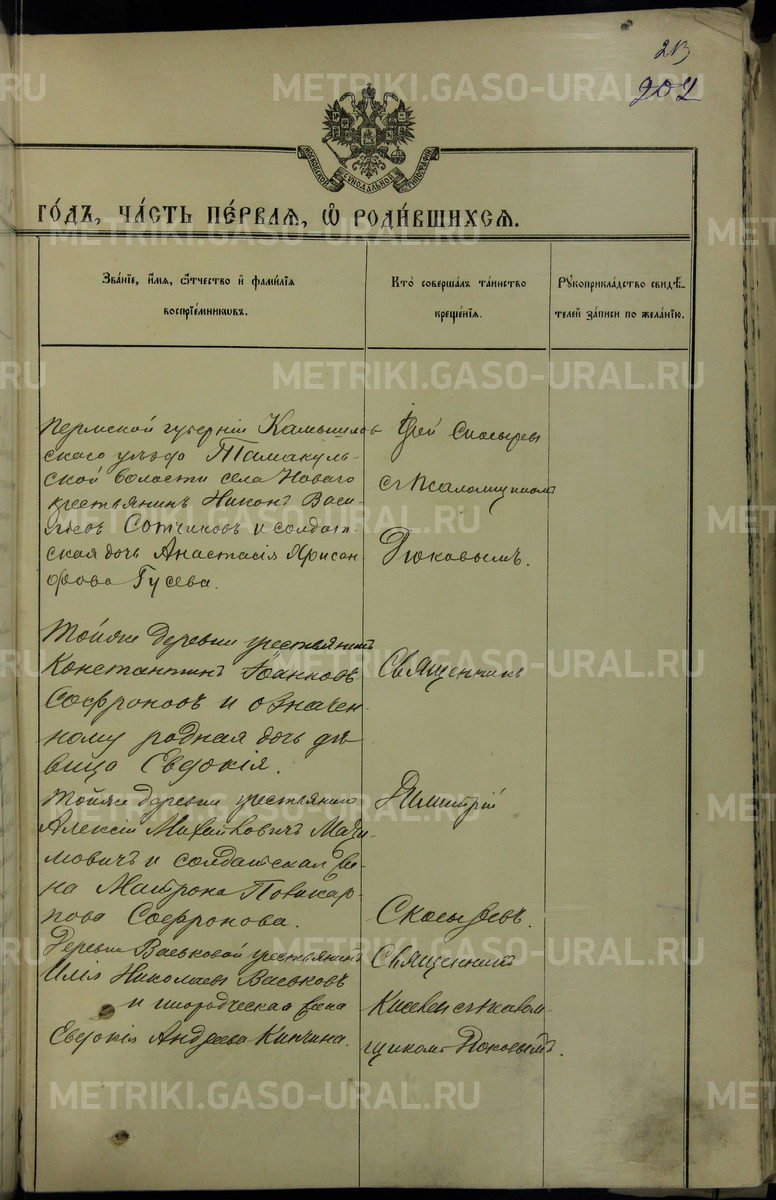 213
202
МОСКОВСКОЙ СѴНОДАЛЬНОЙ ТИПОГРАФІИ
ГО́ДЪ, ЧА́СТЬ ПЕ́РВАЯ, Ѽ РОДИ́ВШИХСЯ.
Зва́ніе, и́мя, ѻ҆́тчество и҆ фами́лія
воспріе́мниковъ.
Кто̀ соверша́лъ та́инство
креще́нія.
Рꙋкоприкла́дство свидѣ́-
телей за́писи по жела́нію.
Пермской губерніи Камышлов
скаго уѣзда Тамакуль-
ской волости села Новаго
крестьянинъ Никонъ Васи-
льевъ Сотчиковъ и солдат-
ская дочь Анастасія Хрисан
фова Гусева.
Іерей Скосырев
съ Псаломщикомъ
Дюковымъ.
Тойже деревни крестьянинъ
Константинъ Іоанновъ
Софроновъ и означен-
ному родная дочь дѣ
вица Евдокія.
Священникъ
Димитрій
Скосыревъ.
Тойже деревни крестьянинъ
Алексій Михайловичъ
мовичъ и солдатская же-
на Матрона Поликар-
пова Софронова.
Деревни Васьковой крестьянинъ
Николаевъ Васьковъ
и жена
Евдокія Андреева Кипчина.
Священникъ
съ псалом-
щикомъ Дюковымъ.
METRIKI.GASO-URAL.RU